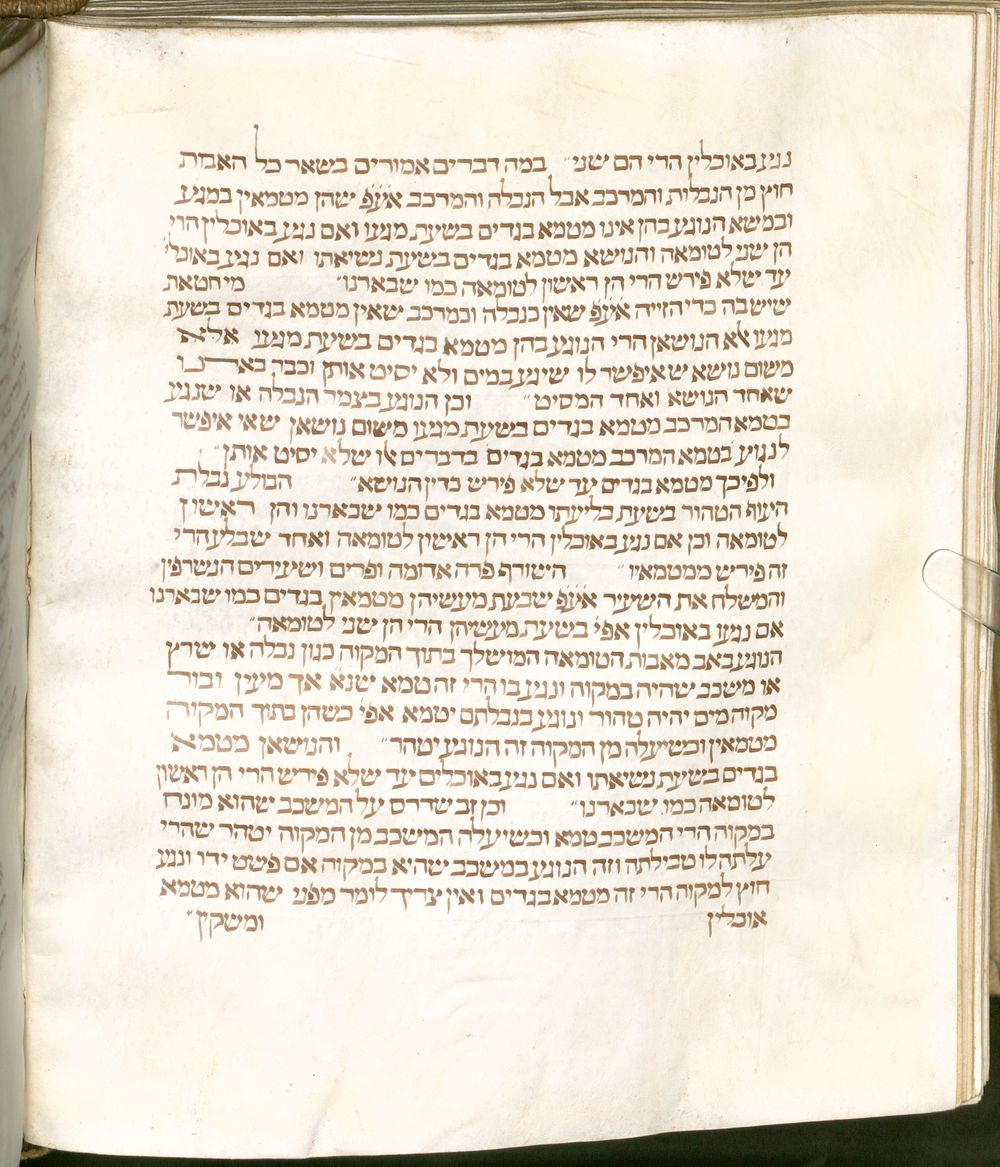 נגע באוכלין הרי הם שני״ במה דברים אמורים בשאר כל האבות
חוץ מן הנבלות והמרכב אבל הנבלה והמרכב אע״פ ישהן מטמאין במגע
ובמשא הנוגע בהן אינו מטמא בגדים בשעת מגעו ואם נגע באוכלין הרי
הן שני לטומאה והנושא מטמא בגדים בשעת נשיאתו ואם נגע באוכלי׳
עד שלא פירש הרי הן ראשון לטומאה כמו שבארנו״ מי חטאת
שיש בה כדי הזייה אע״פ שאין כנבלה וכמרכב שאין מטמא בגדים בשעת
מגעו אלא הנושאן הרי הנוגע בהן מטמא בגדים בשעת מגעו אלא
משום נושא שאיפשר לו שיגע במים ולא יסיט אותן וכבר בארנו
שאחד הנושא ואחד המסיט״ וכן הנוגע בצמר הנבלה או שנגע
בטמא המרכב מטמא בגדים בשעת מגעו משום נושאן שאי איפשר
לנגוע בטמא המרכב מטמא בגדים בדברים אלו שלא יסיט אותן״
ולפיכך מטמא בגדים עד שלא פירש כדין הנושא״ הבולע נבלת
העוף הטהור בשעת בליעתו מטמא בגדים כמו שבארנו והן ראשון
לטומאה וכן אם נגע באוכלין הרי הן ראשין לטומאה ואחד שבלע הרי
זה פירש ממטמאיו״ השורף פרה אדומה ופרים ושיעירים הנשרפין
והמשלח את השעיר אע״פ שבעת מעשיהן מטמאין בגדים כמו שבארנו
אם נגעו באוכלין אפי׳ בשעת מעשיהן הרי הן שני לטומאה״
הנוגע באב מאבות הטומאה המושלך בתוך המקוה כגון נבלה או שרץ
או משכב שהיה במקוה ונגע בו הרי זה טמא שנא׳ אך מעין ובור
מקוה מים יהיה טהור ונוגע בנבלתם יטמא אפי׳ כשהן בתוך המקוה
מטמאין וכשיעלה מן המקוה זה הנוגע יטהר״ והנושאן מטמא
בגדים בשעת נשיאתו ואם נגע באוכלים עד שלא פירש הרי הן ראשון
לטומאה כמו שבארנו״ וכן זב שדרס על המשכב שהוא מונח
במקוה הרי המשכב טמא וכשיעלה המשכב מן המקוה יטהר שהרי
עלתה לו טבילתה וזה הנוגע במשכב שהיא במקוה אם פשט ידו ונגע
חוץ למקוה הרי זה מטמא בגדים ואין צריך לומר מפני שהוא מטמא
אוכלין ומשקין״